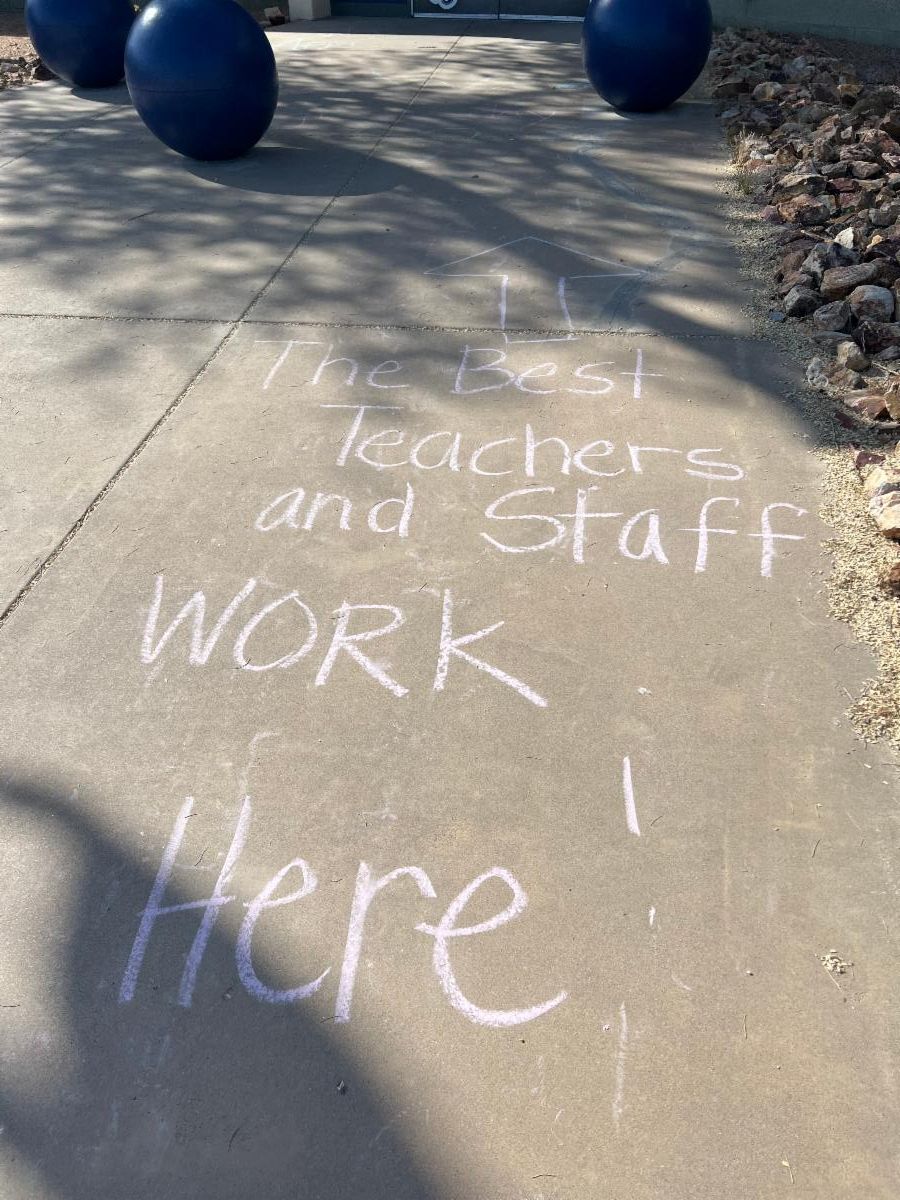 The Best
Teachers
and Staff
WORK
Here!